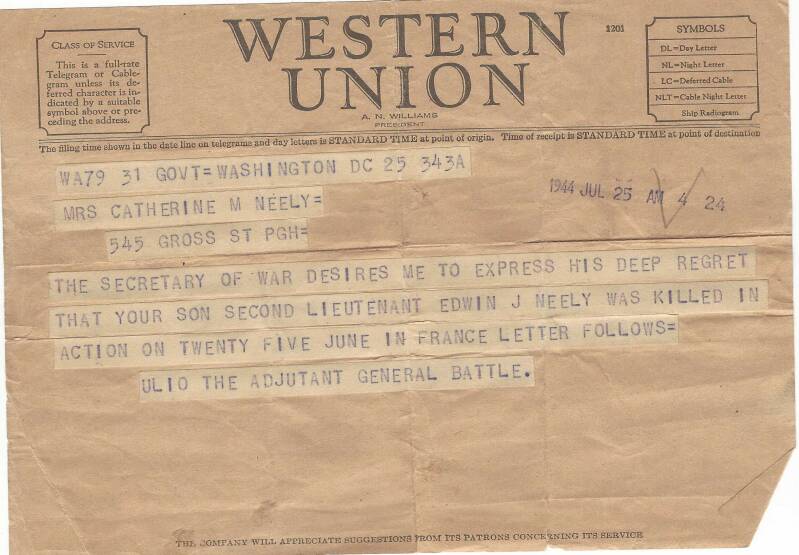 CLASS OF SERVICE
This is a full-rate
Telegram or Cable-
gram unless its de-
ferred character is in-
dicated by a suitable
symbol above or pre-
ceding the address.
WESTERN
UNION
A. N. WILLIAMS
PRESIDENT
1201
SYMBOLS
DL=Day Letter
NL=Night Letter
LC=Deferred Cable
NLT=Cable Night Letter
Ship Radiogram
The filing time shown in the date line on telegrams and day letters is STANDARD TIME at point of origin. Time of receipt is STANDARD TIME at point of destination
WA79 31 GOVT=WASHINGTON DC 25 343A
1944 JUL 25 AM 4 24
MRS CATHERINE M NEELY=
545 GROSS ST PGH=
THE SECRETARY OF WAR DESIRES ME TO EXPRESS HIS DEEP REGRET
THAT YOUR SON SECOND LIEUTENANT EDWIN J NEELY WAS KILLED IN
ACTION ON TWENTY FIVE JUNE IN FRANCE LETTER FOLLOWS=
ULIO THE ADJUTANT GENERAL BATTLE.
THE COMPANY WILL APPRECIATE SUGGESTIONS FROM ITS PATRONS CONCERNING ITS SERVICE